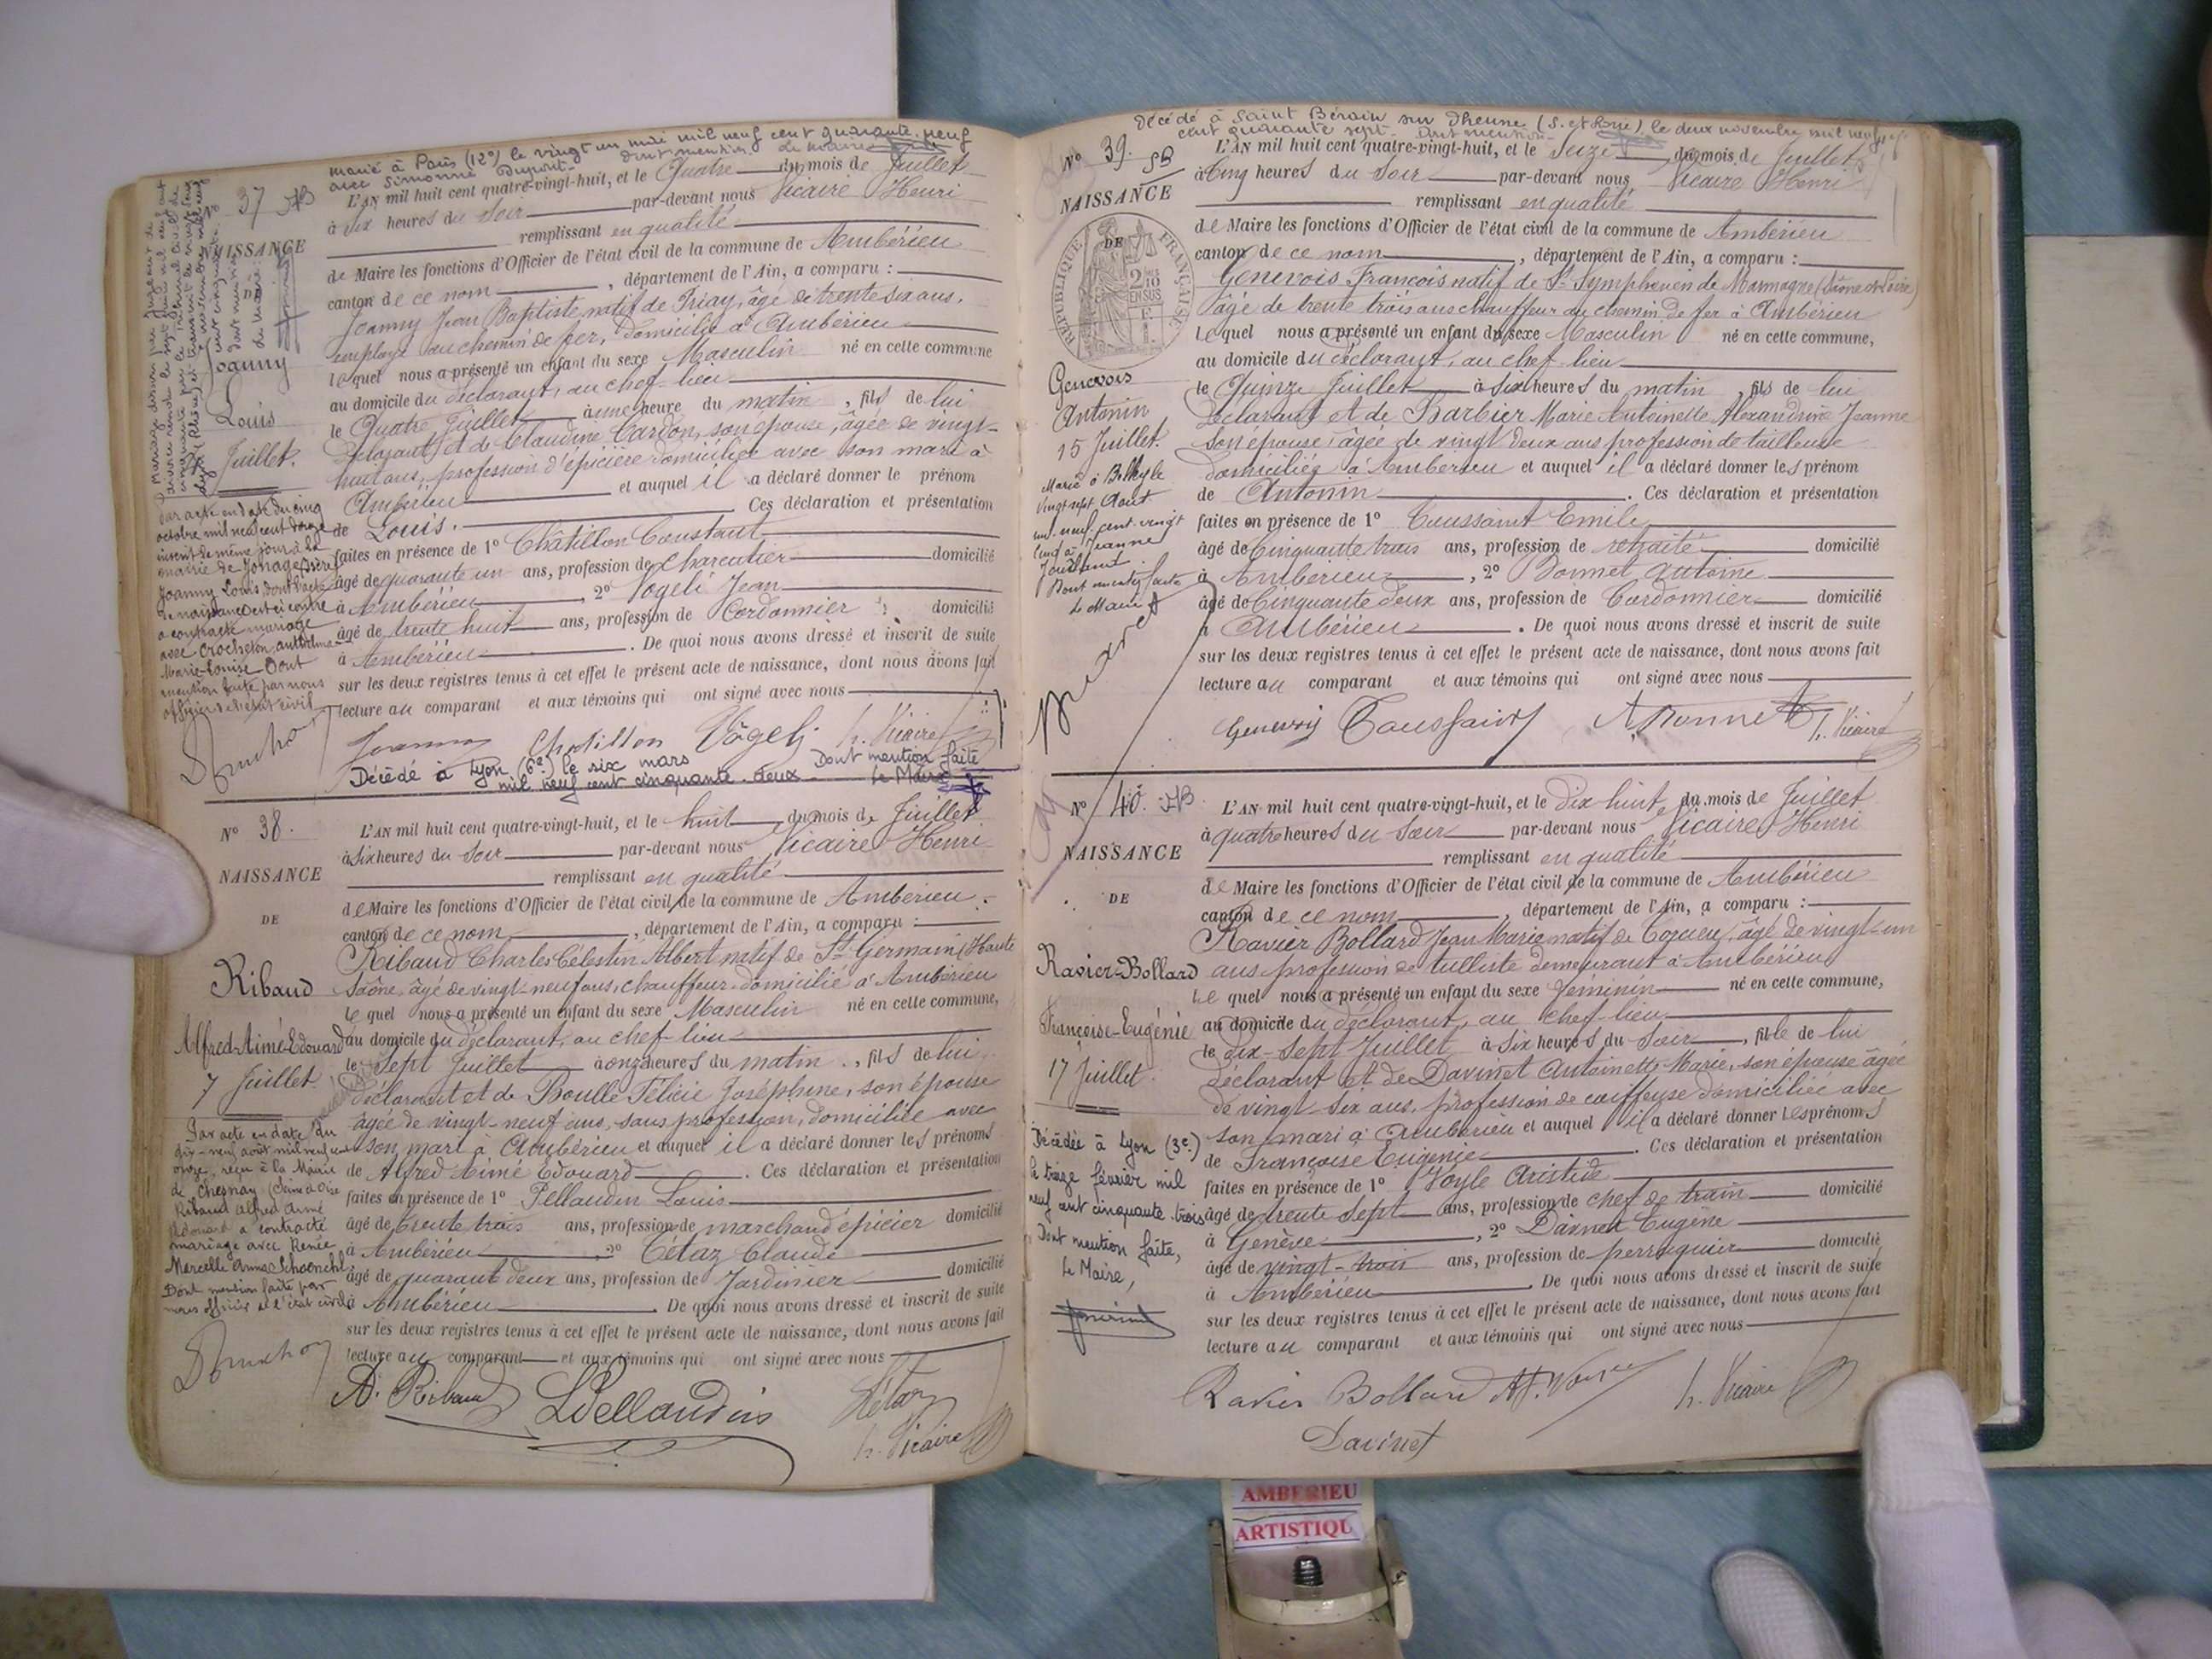 marié à Paris (12e) le vingt un mai mil neuf cent quarante-neuf
avec Simonne Dupont. dont mention. Le Maire
No 37
NAISSANCE
DE
Joanny
Louis
4 Juillet.
Par acte en date du cinq
octobre mil neuf cent douze
inscrit le même jour à la
mairie de Jonage (Isère)
Joanny Louis, dont l'acte
de naissance est ci contre
a contracté mariage
avec Crochelon, Anthelmie
Marie-Louise. Dont
mention faite par nous
officier de l'état civil
L'AN mil huit cent quatre-vingt-huit, et le Quatre du mois de Juillet
à Six heures du Soir par-devant nous Vicaire Henri
remplissant en qualité
de Maire les fonctions d'Officier de l'état civil de la commune de Ambérieu
canton de ce nom, département de l'Ain, a comparu :
Joanny Jean Baptiste natif de Priay, âgé de trente six ans,
employé au chemin de fer, domicilié à Ambérieu
lequel nous a présenté un enfant du sexe Masculin né en cette commune
au domicile du déclarant, au chef-lieu
le Quatre Juillet à une heure du matin, fils de lui
déclarant et de Claudine Cardon, son épouse, âgée de vingt-
huit ans, profession d'épicière domiciliée avec son mari à
Ambérieu et auquel il a déclaré donner le prénom
de Louis. Ces déclaration et présentation
faites en présence de 1o Châtillon Constant
âgé de quarante un ans, profession de charcutier domicilié
à Ambérieu, 2o Vogeli Jean
âgé de trente huit ans, profession de Cordonnier domicilié
à Ambérieu. De quoi nous avons dressé et inscrit de suite
sur les deux registres tenus à cet effet le présent acte de naissance, dont nous avons fait
lecture au comparant et aux témoins qui ont signé avec nous
Joanny Chatillon Vögeli h. Vicaire
Décédé à Lyon (6e) le six mars Dont mention faite
mil neuf cent cinquante-deux. Le Maire
No 38.
NAISSANCE
DE
Ribaud
Alfred-Aimé-Edouard
7 Juillet
Par acte en date du
dix-neuf août mil neuf cent
onze, reçu à la Mairie
de Chesnay (Seine et Oise
Ribaud Alfred Aimé
Edouard a contracté
mariage avec Renée
Marcelle Anna Schoenchl.
Dont mention faite par
nous officier de l'état civil
L'AN mil huit cent quatre-vingt-huit, et le huit du mois de Juillet
à Six heures du Soir par-devant nous Vicaire Henri
remplissant en qualité
de Maire les fonctions d'Officier de l'état civil de la commune de Ambérieu
canton de ce nom, département de l'Ain, a comparu :
Ribaud Charles Célestin Albert natif de St Germain (Haute
Saône, âgé de vingt-neuf ans, chauffeur domicilié à Ambérieu
lequel nous a présenté un enfant du sexe Masculin né en cette commune,
au domicile du déclarant, au chef-lieu
le Sept Juillet à onze heures du matin, fils de lui
déclarant et de Boulle Félicie Joséphine, son épouse
âgée de vingt-neuf ans, sans profession, domiciliée avec
son mari à Ambérieu et auquel il a déclaré donner les prénoms
de Alfred Aimé Edouard. Ces déclaration et présentation
faites en présence de 1o Pellaudin Louis
âgé de trente trois ans, profession de marchand épicier domicilié
à Ambérieu, 2o Cétaz Claude
âgé de quarante deux ans, profession de Jardinier domicilié
à Ambérieu. De quoi nous avons dressé et inscrit de suite
sur les deux registres tenus à cet effet le présent acte de naissance, dont nous avons fait
lecture au comparant et aux témoins qui ont signé avec nous
A. Ribaud LPellaudin Cétaz
h. Vicaire
Décédé à Saint Bérain sur Dheune (S. et Loire) le deux novembre mil neuf
cent quarante sept. Dont mention.
No 39.
NAISSANCE
DE
RÉPUBLIQUE FRANÇAISE
2/10 EN SUS
Genevois
Antonin
15 Juillet.
Marié à
vingt-sept Août
mil neuf cent vingt
cinq à Jeanne
Dont mention faite
Le Maire
L'AN mil huit cent quatre-vingt-huit, et le Seize du mois de Juillet
à Cinq heures du Soir par-devant nous Vicaire Henri
remplissant en qualité
de Maire les fonctions d'Officier de l'état civil de la commune de Ambérieu
canton de ce nom, département de l'Ain, a comparu :
Genevois François natif de St Symphorien de Marmagne (Saône et Loire)
âgé de trente trois ans chauffeur au chemin de fer à Ambérieu
lequel nous a présenté un enfant du sexe Masculin né en cette commune,
au domicile du déclarant, au chef-lieu
le Quinze Juillet à Six heures du matin, fils de lui
déclarant et de Barbier Marie Antoinette Alexandrine Jeanne
son épouse, âgée de vingt deux ans profession de tailleuse
domiciliée à Ambérieu et auquel il a déclaré donner les prénom
de Antonin. Ces déclaration et présentation
faites en présence de 1o Toussaint Emile
âgé de Cinquante trois ans, profession de retraité domicilié
à Ambérieu, 2o Bonnet Antoine
âgé de Cinquante deux ans, profession de Cordonnier domicilié
à Ambérieu. De quoi nous avons dressé et inscrit de suite
sur les deux registres tenus à cet effet le présent acte de naissance, dont nous avons fait
lecture au comparant et aux témoins qui ont signé avec nous
Genevois Toussaint A Bonnet h. Vicaire
No 40.
NAISSANCE
DE
Ravier-Bollard
Françoise-Eugénie
17 Juillet.
Décédée à Lyon (3e)
le treize février mil
neuf cent cinquante-trois
Dont mention faite,
Le Maire,
L'AN mil huit cent quatre-vingt-huit, et le Dix huit du mois de Juillet
à quatre heures du Soir par-devant nous Vicaire Henri
remplissant en qualité
de Maire les fonctions d'Officier de l'état civil de la commune de Ambérieu
canton de ce nom, département de l'Ain, a comparu :
Ravier Bollard Jean Marie natif de Torcieu, âgé de vingt-un
ans profession de tulliste demeurant à Ambérieu
lequel nous a présenté un enfant du sexe féminin né en cette commune,
au domicile du déclarant, au chef-lieu
le Dix-Sept Juillet à Six heures du Soir, fille de lui
déclarant et de Davinet Antoinette Marie, son épouse âgée
de vingt Six ans, profession de coiffeuse domiciliée avec
son mari à Ambérieu et auquel il a déclaré donner les prénoms
de Françoise Eugénie. Ces déclaration et présentation
faites en présence de 1o Voyle Aristide
âgé de trente Sept ans, profession de chef de train domicilié
à Genève, 2o Davinet Eugène
âgé de vingt-trois ans, profession de perruquier domicilié
à Ambérieu. De quoi nous avons dressé et inscrit de suite
sur les deux registres tenus à cet effet le présent acte de naissance, dont nous avons fait
lecture au comparant et aux témoins qui ont signé avec nous
Ravier Bollard h. Vicaire
Davinet
AMBERIEU
ARTISTIQU